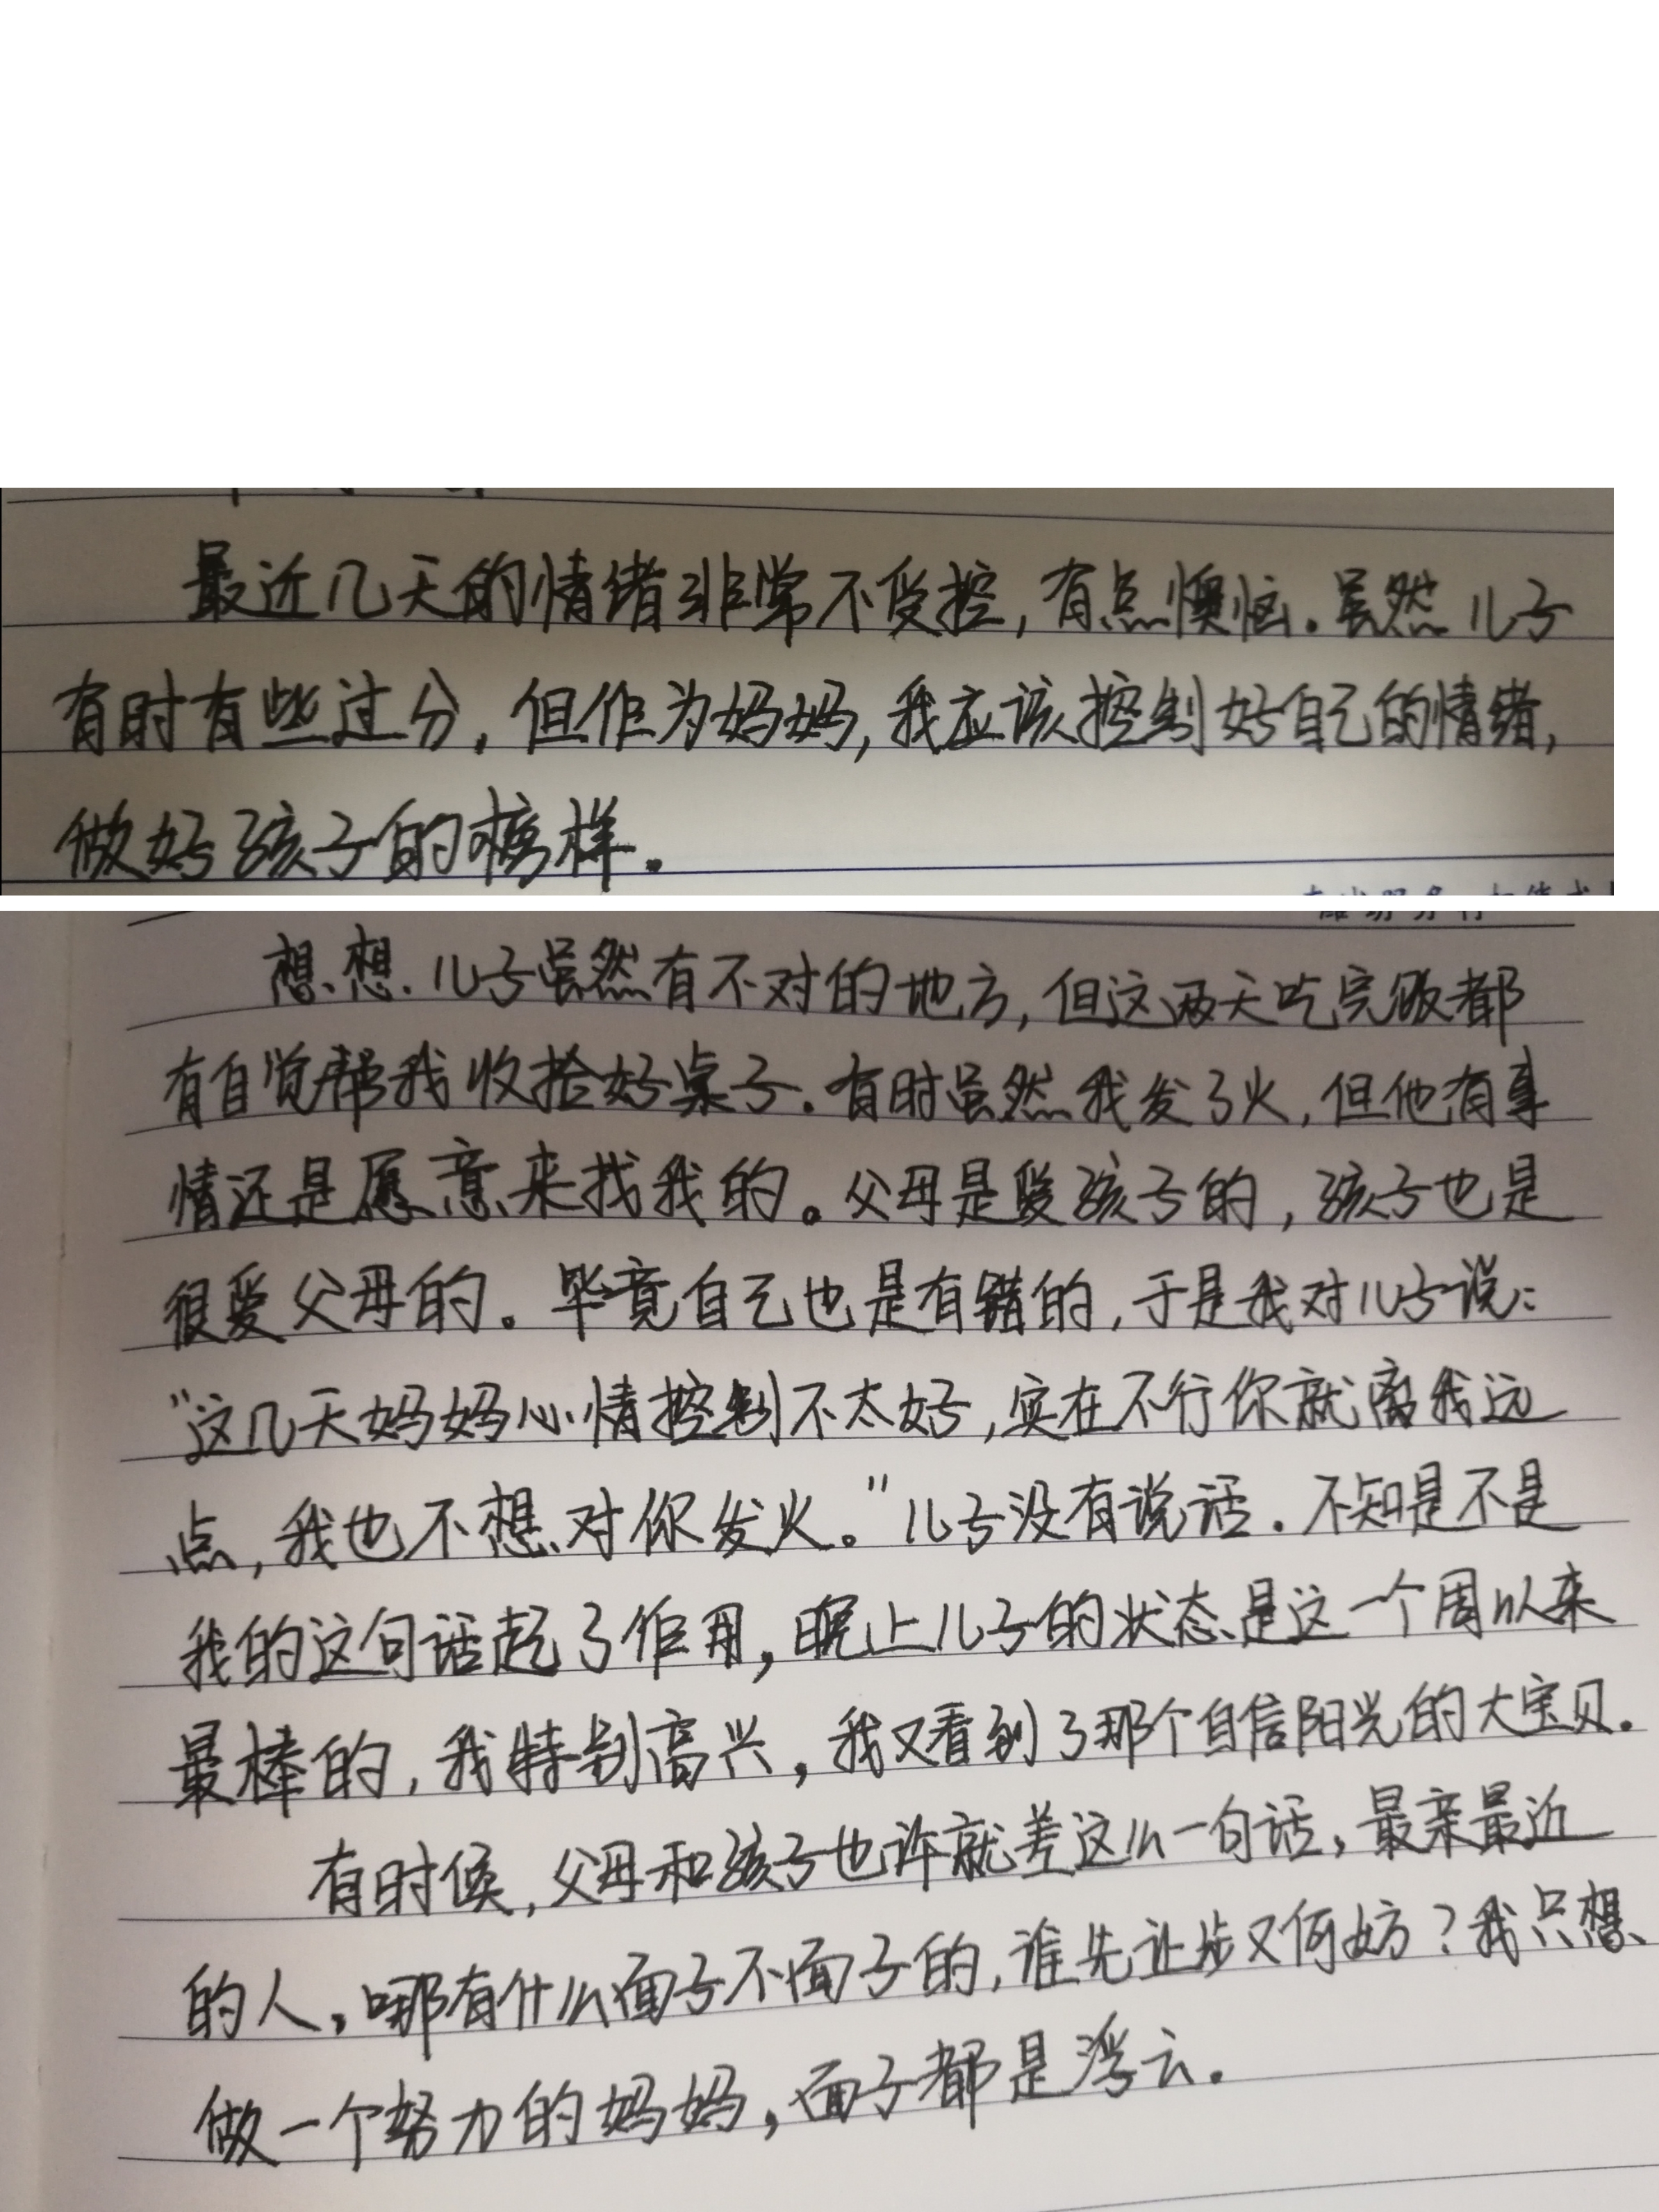 最近几天的情绪非常不受控，有点懊恼。虽然儿子
有时有些过分，但作为妈妈，我应该控制好自己的情绪，
做好孩子的榜样。
想想，儿子虽然有不对的地方，但这两天吃完饭都
有自觉帮我收拾好桌子。有时虽然我发了火，但他有事
情还是愿意来找我的。父母是爱孩子的，孩子也是
很爱父母的。毕竟自己也是有错的，于是我对儿子说：
“这几天妈妈心情控制不太好，实在不行你就离我远
点，我也不想对你发火。”儿子没有说话。不知是不是
我的这句话起了作用，晚上儿子的状态是这一个周以来
最棒的，我特别高兴，我又看到了那个自信阳光的大宝贝。
有时候，父母和孩子也许就差这么一句话，最亲最近
的人，哪有什么面子不面子的，谁先让步又何妨？我只想
做一个努力的妈妈，面子都是浮云。